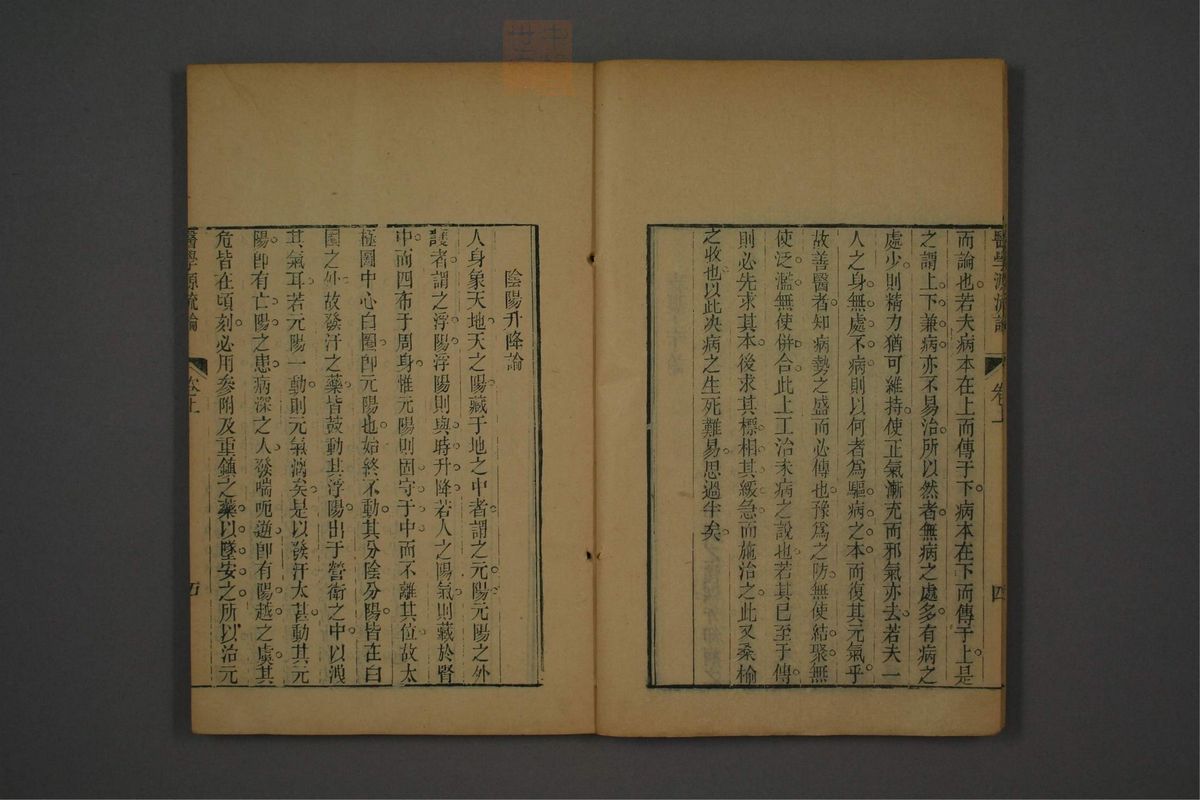 醫學源流論
卷上
四
而論也若夫病本在上而傳于下病本在下而傳于上是
之謂上下兼病亦不易治所以然者無病之處多有病之
處少則精力猶可維持使正氣漸充而邪氣亦去若夫一
人之身無處不病則以何者為驅病之本而復其元氣乎
故善醫者知病勢之盛而必傳也豫為之防無使結聚無
使泛濫無使併合此上工治未病之說也若其已至于傳
則必先求其本後求其標相其緩急而施治之此又桑榆
之收也以此決病之生死難易思過半矣
陰陽升降論
人身象天地天之陽藏于地之中者謂之元陽元陽之外
護者謂之浮陽浮陽則與時升降若人之陽氣則藏於腎
中而四布于周身惟元陽則固守于中而不離其位故太
極圖中心白圈即元陽也始終不動其分陰分陽皆在白
圈之外故發汗之藥皆鼓動其浮陽出于營衛之中以洩
其氣耳若元陽一動則元氣漓矣是以發汗太甚動其元
陽即有亡陽之患病深之人發喘呃逆即有陽越之虞其
危皆在頃刻必用參附及重鎮之藥以墜安之所以治元
醫學源流論
卷上